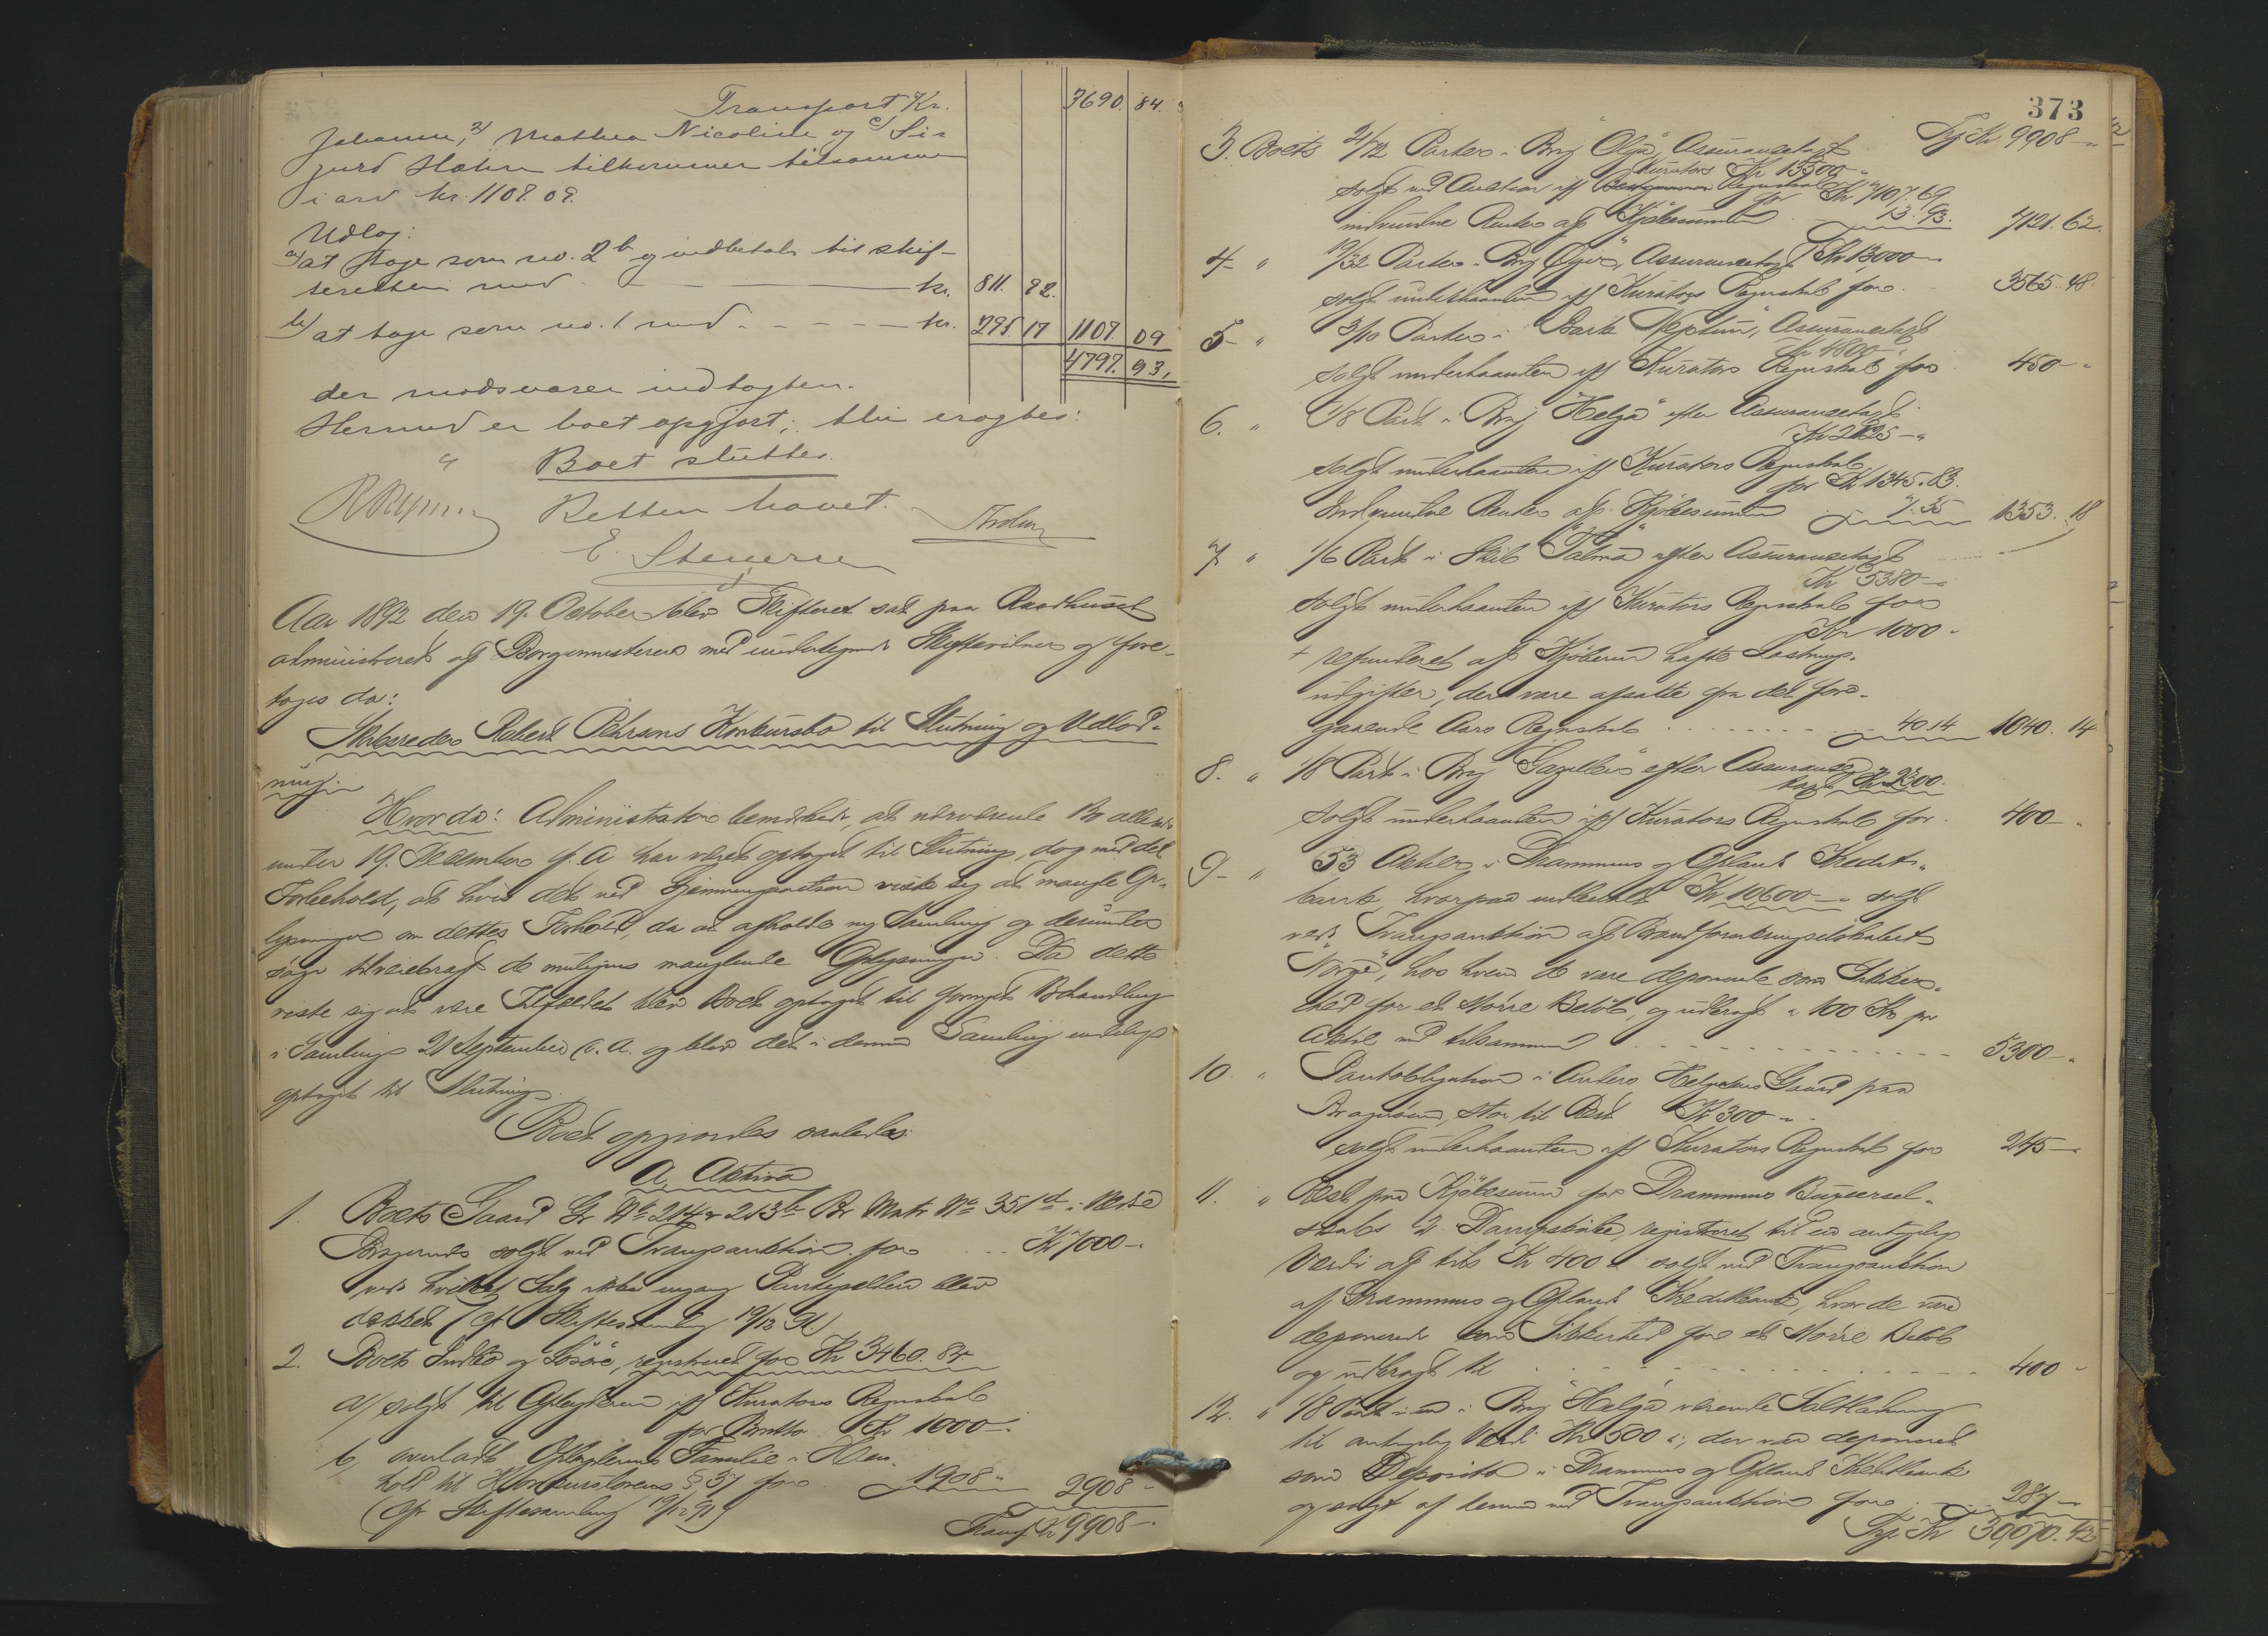 Transport Kr. 3690. 84.
Johanne, 2) Mathea Nicoline og c) Si-
gurd Holm tilkommer tilsammen
i arv kr. 1107. 09.
Udlæg:
a) at tage som no. 2 b og indbetale til skif-
teretten med - - - kr. 811. 92.
b) at tage som no. 1 med - - - - - kr. 295 17 1107. 09
4797. 93.
der modsvarer indtægten.
Hermed er boet opgjort; blev eragtet:
Boet sluttes.
Retten hævet.
E. Stenersen
Aar 1892 den 19. October blev Skifteret sat paa Raadhuset
administreret af Borgermesteren med undertegnede Skiftevidner og fore-
toges da:
Skibsreder Robert Pehrsons Konkursbo til Slutning og Udlod-
ning.
Hvorda: Administrator bemærkede, at nærværende Bo allerede
under 19. December f. A. har været optaget til Slutning, dog med det
Forbehold, at hvis det ved Gjennemgaaelsen viste sig at mangle Op-
lysninger om dettes Forhold, da at afholde ny Samling og derunder
søge tilveiebragt de muligens manglende Oplysninger. Da dette
viste sig at være Tilfældet blev Boet optaget til fornyet Behandling
i Samling 21 September d. A. og blev det i denne Samling endelig
optaget til Slutning.
Boet opgjordes saaledes:
A. Aktiva
1. Boets Gaard Gr No 214 og 213 b Br Matr No 351 d i Nedre
solgt ved Tvangsauktion for .. Kr 7000 -.
ved hvilket Salg ikke engang Pantegjælden blev
dækket (cfr Skiftesamling 19/12 91)
2. Boets Indbo og Løsøre, registreret for Kr 3460. 84.
a) solgt til Opbyderen iflg Kurators Regnskab
for Brutto Kr 1000 -.
b, overladt Opbyderens Familie i Hen-
hold til Konkurslovens § 37 for 1908 - 2908 -
(cfr Skiftesamling 19/12 91)
Transp. Kr 9908 -.
373
Trsp Kr 9908 -
3. Boets 21/72 Parter i Brig "Olga", Assurancetaxt
Kr 13500 -
solgt ved Auktion iflg Kurators Regnskab for Kr 7107. 69
indvundne Renter af Kjøbesummen .. 13. 93. 7121. 62.
4 - " 19/32 Parter i Brig Assurancetaxt Kr 13,000 -
solgt underhaanden iflg Kurators Regnskab for . 3565. 48.
5 - " 3/10 Parter i Bark "Neptun", Assurancetaxt
Kr 4800 -
solgt underhaanden iflg Kurators Regnskab for 450 -
6. " 1/8 Part i Brig "Helga" efter Assurancetaxt
Kr 2125 -
solgt underhaanden iflg Kurators Regnskab
for Kr 1345. 83.
Indvundne Renter af Kjøbesummen .. 7. 35 1353. 18
7 " 1/6 Part i Skib "Talma" efter Assurancetaxt
Kr 5380 -
solgt underhaanden iflg Kurators Regnskab for
Kr 1000 -
+ refunderet af Kjøberen hafte Lastnings-
udgifter, der vare afsatte fra det fore-
gaaende Aars Regnskab . . . . . . 40.14 1040. 14
8. " 1/8 Part i Brig "Gazellen" efter Assurance-
taxt Kr 2300.
solgt underhaanden iflg Kurators Regnskab for . 400 -
9 - " 53 Aktier i Drammens og Oplands Kredit-
bank, hvorpaa indbetalt Kr 10,600 -. solgt
ved Tvangsauktion af Brandforsikringsselskabet
"Norge", hos hvem de vare deponerede som Sikker-
hed for et større Beløb, og udbragt a 100 Kr pr
Aktie med tilsammen . . . . . . . 5300 -
10. " Pantobligation i Anders Gaard paa
Bragernes, stor til Rest Kr 300 -.
solgt underhaanden iflg Kurators Regnskab for 245 -
11. " Rest paa Kjøbesum for Drammens Bugserel-
skabs 2 Dampskibe, registreret til en antagelig
Værdi af tils Kr 400 - solgt ved Tvangsauktion
af Drammens og Oplands Kreditbank, hvor de vare
deponerede som Sikkerhed for et større Beløb
og udbragt til . . . . . . . . . 400 -
12. " 1/8 Part i en i Brig "Helga" værende Saltladning
til antagelig Værdi Kr 500 -, der var deponeret
som Deposito i Drammens og Oplands Kreditbank
og solgt af denne ved Tvangsauktion for . . 287 -
Trsp. Kr 30,070. 42